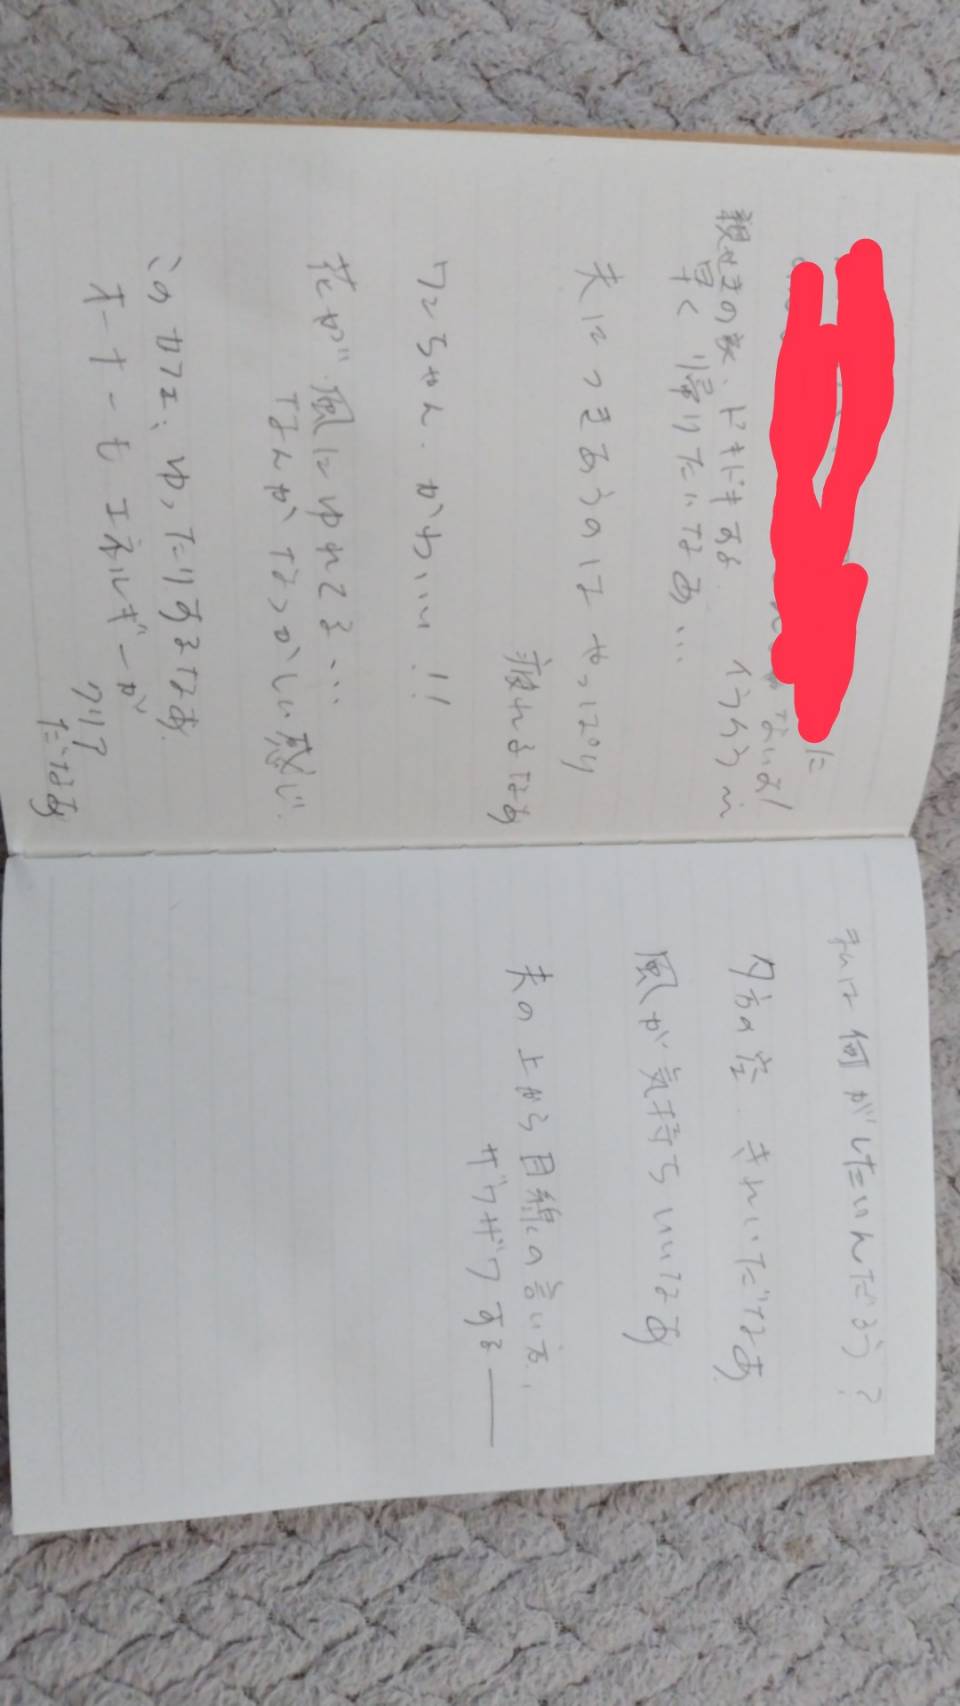 に
ないよ
イライラ
親せきの家、ドキドキするよ
早く帰りたいなあ…
夫につきあうのはやっぱり
疲れるなあ
ワンちゃん、かわいい!!
花が風にゆれてる…
なんかなつかしい感じ
このカフェ、ゆったりするなあ
オーナーもエネルギーが
クリア
だなあ
私は何がしたいんだろう?
夕方の空 きれいだなあ
風が気持ちいいなあ
夫の上から目線の言い方、
ザワザワする――